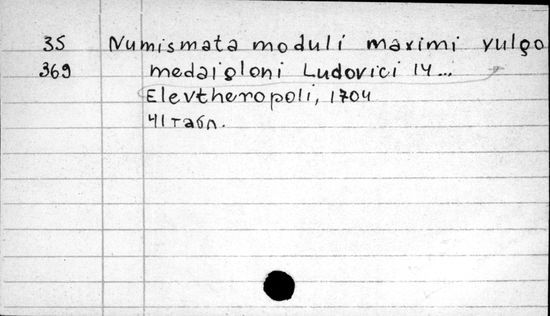 35 Numismata moduli maximi vulgo
369 medaigloni Ludovici 14...
Elevtheropoli, 1704
41 табл.